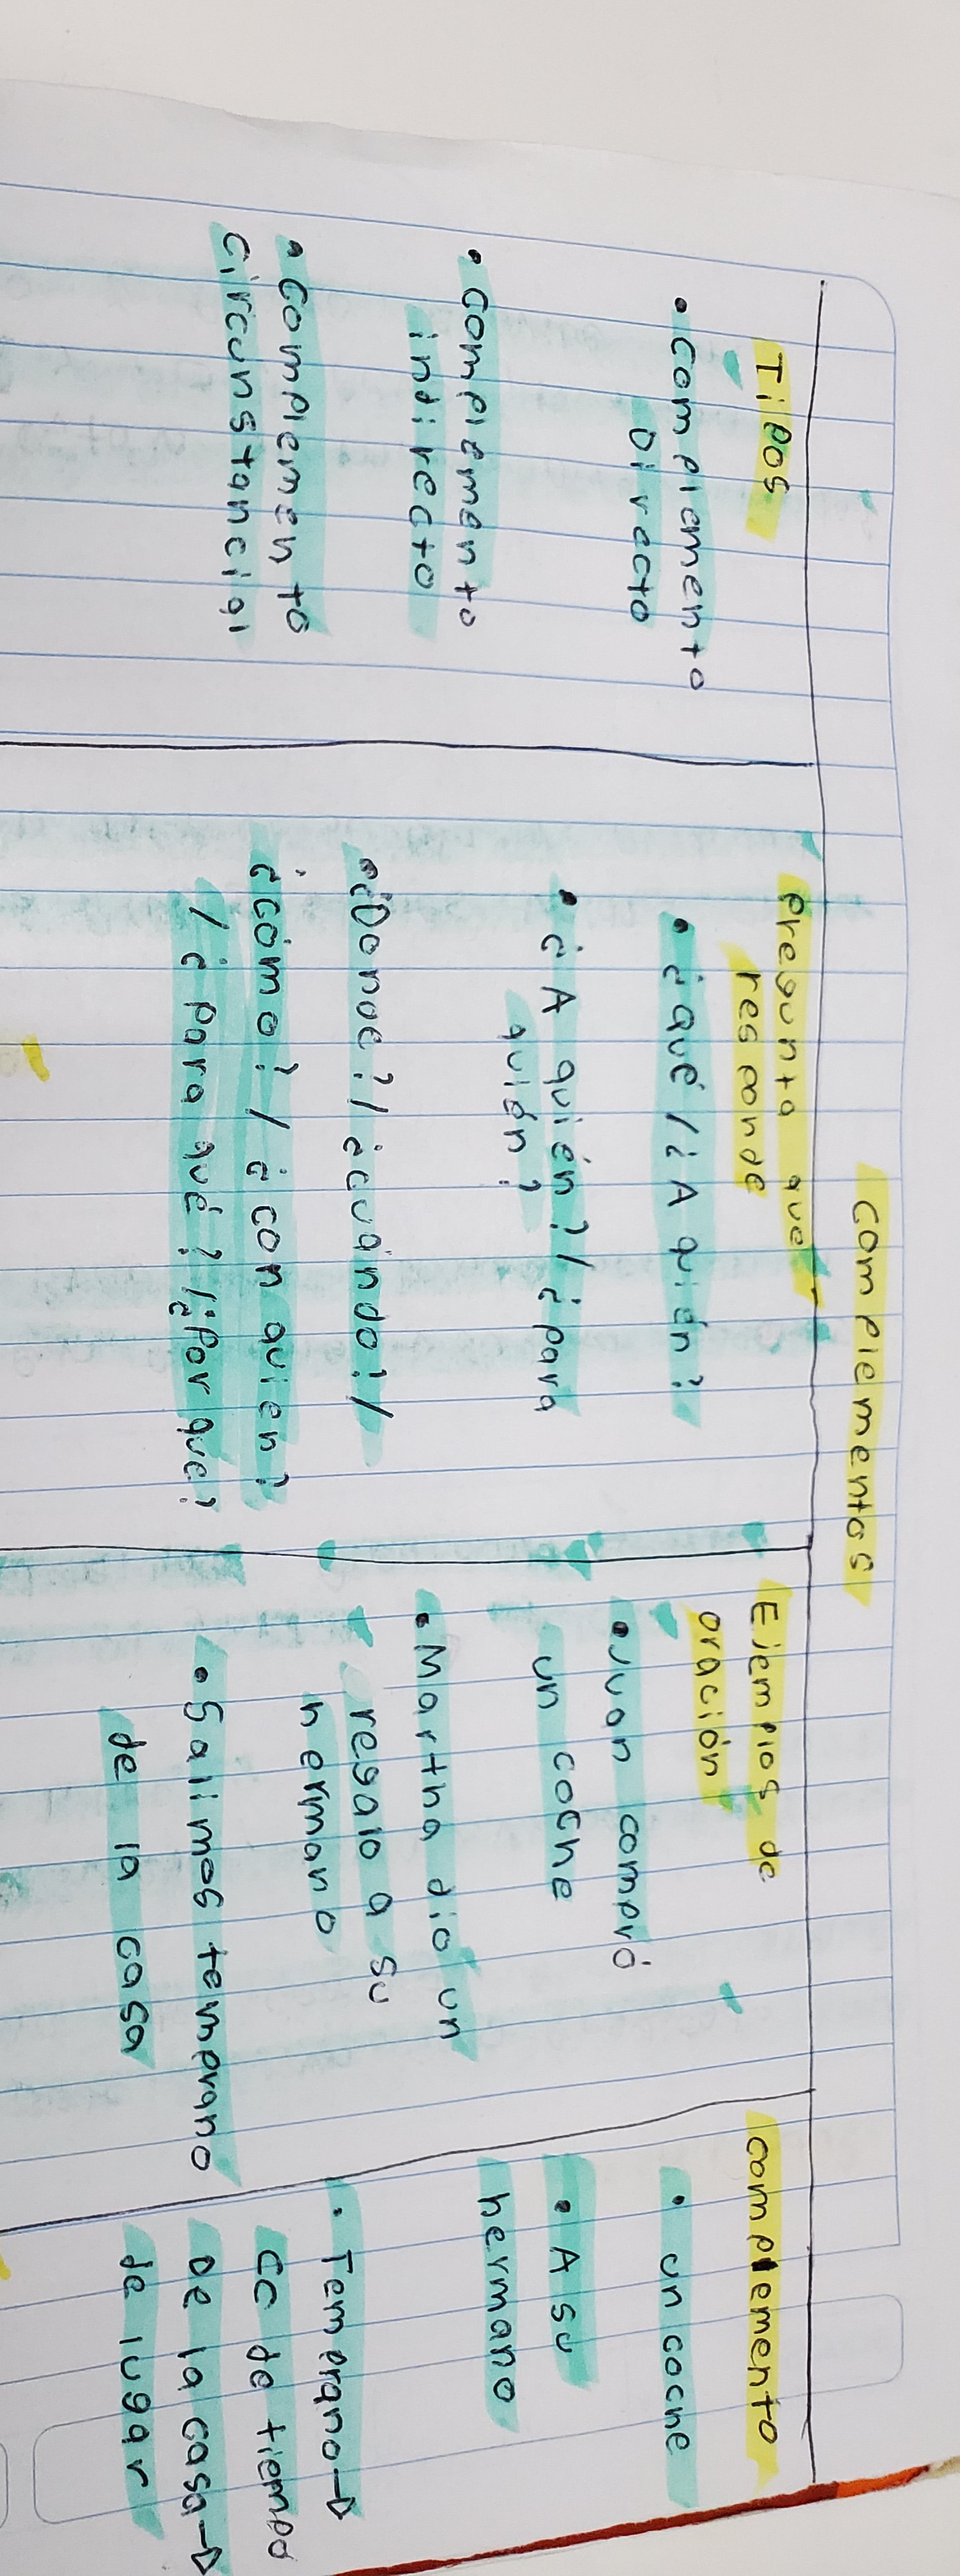 Complementos
Tipos
• Complemento
Directo
• Complemento
indirecto
• Complemento
circunstancial
Pregunta que
responde
• ¿qué / ¿A quién?
• ¿A quién? / ¿para
quién?
• ¿Donde? / ¿cuándo? /
¿cómo? / ¿con quien?
/ ¿para qué? / ¿Por que?
Ejemplos de
oración
• Juan compró
un coche
• Martha dio un
regalo a su
hermano
• Salimos temprano
de la casa
Complemento
• un coche
• A su
hermano
• Temprano →
CC de tiempo
De la casa →
de lugar